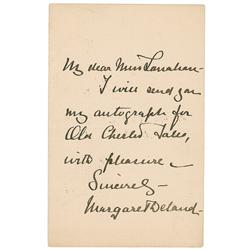 My dear Miss Lanahan–
I will send you
my autograph for
Old Chester Tales,
with pleasure –
Sincerely–
Margaret Deland–